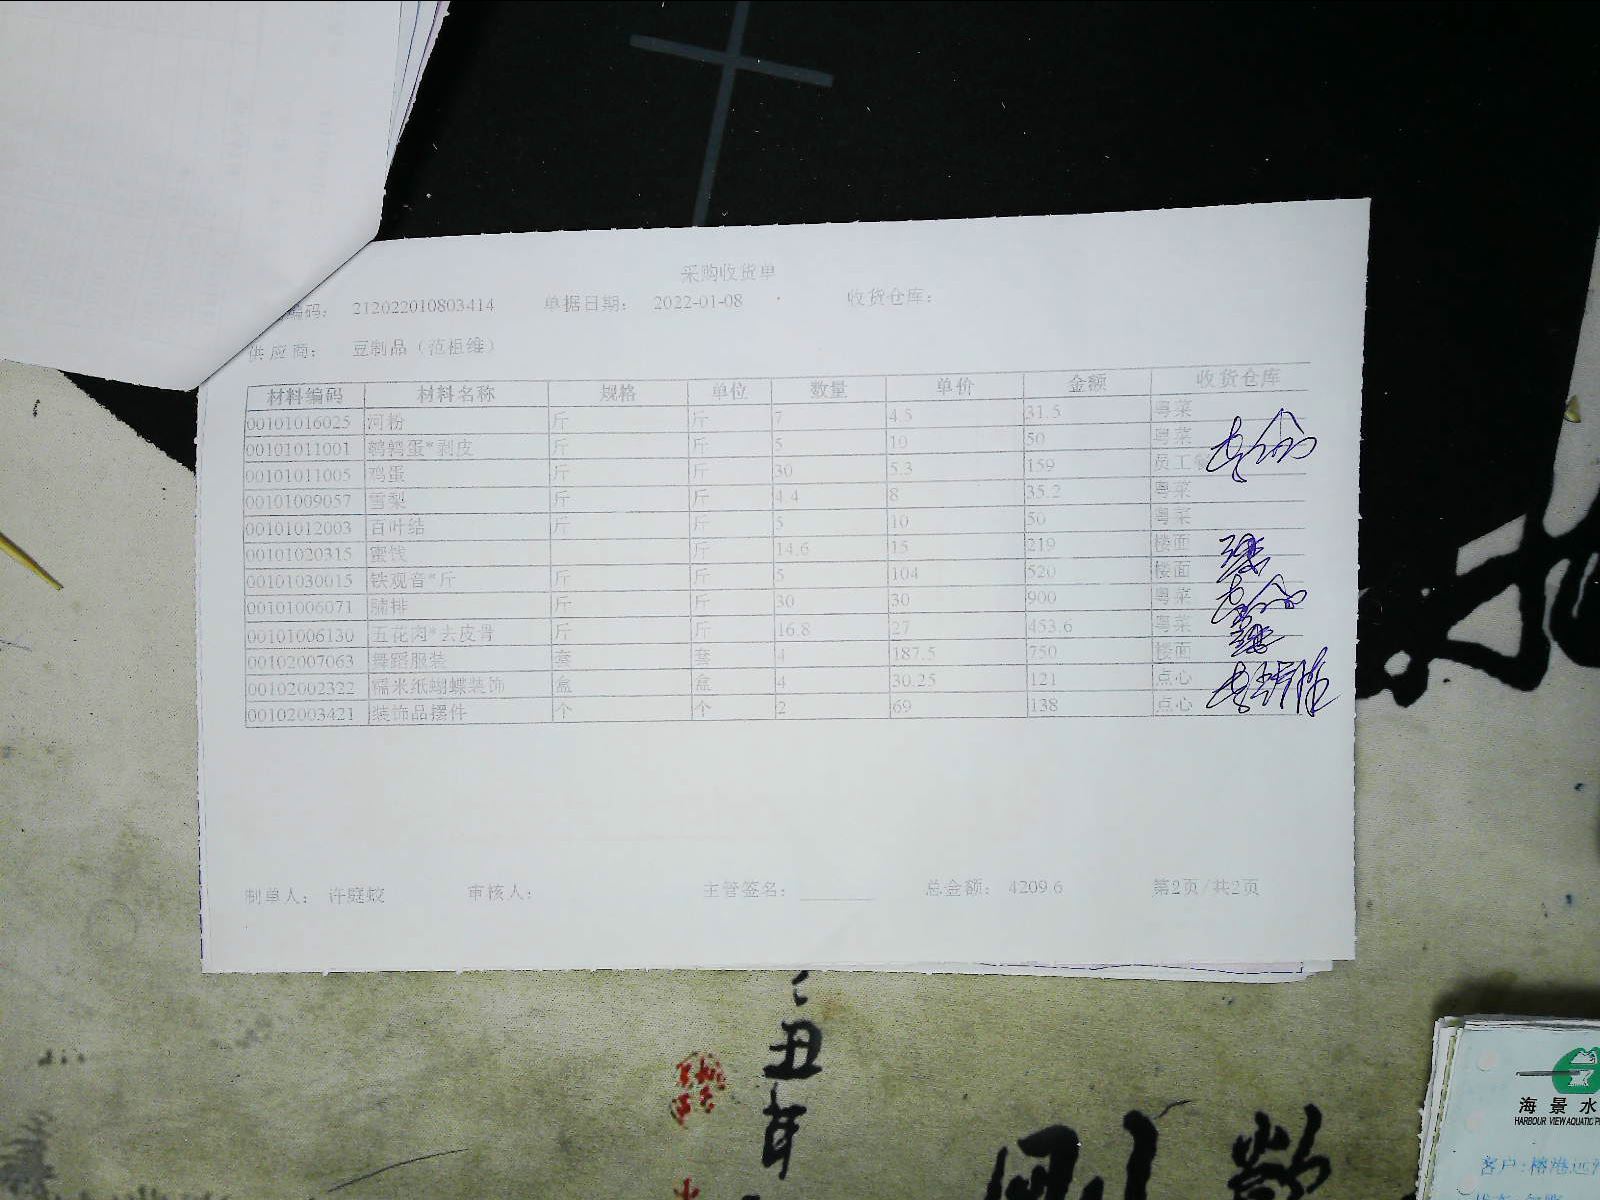 采购收货单
编码： 212022010803414 单据日期： 2022-01-08 收货仓库：
供应商： 豆制品（范祖维）
材料编码 材料名称 规格 单位 数量 单价 金额 收货仓库
00101016025 河粉 斤 斤 7 4.5 31.5 粤菜
00101011001 鹌鹑蛋*剥皮 斤 斤 5 10 50 粤菜
00101011005 鸡蛋 斤 斤 30 5.3 159 员工餐
00101009057 雪梨 斤 斤 4.4 8 35.2 粤菜
00101012003 百叶结 斤 斤 5 10 50 粤菜
00101020315 蜜饯 斤 14.6 15 219 楼面
00101030015 铁观音*斤 斤 斤 5 104 520 楼面
00101006071 腩排 斤 斤 30 30 900 粤菜
00101006130 五花肉*去皮骨 斤 斤 16.8 27 453.6 粤菜
00102007063 舞蹈服装 套 套 4 187.5 750 楼面
00102002322 糯米纸蝴蝶装饰 盒 盒 4 30.25 121 点心
00102003421 装饰品摆件 个 个 2 69 138 点心
制单人： 许庭蛟 审核人： 主管签名： 总金额： 4209.6 第2页/共2页
丑年
海景水
HARBOUR VIEW AQUATIC P
客户: